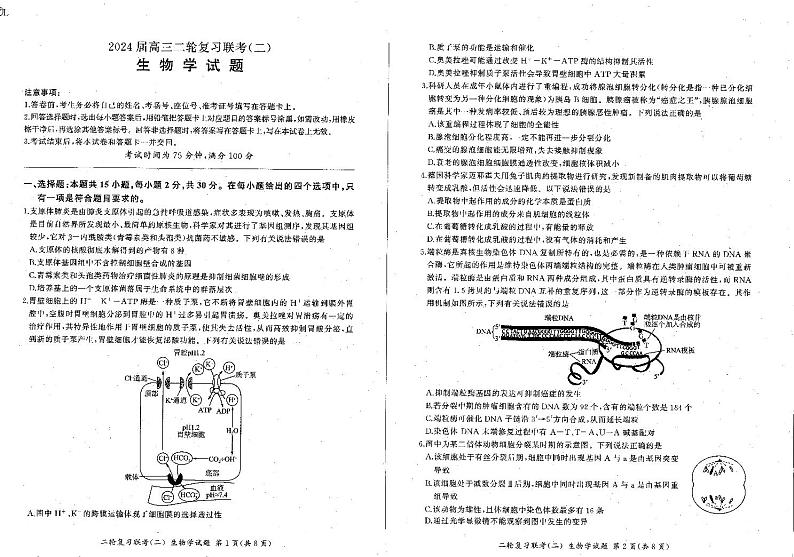 2024届高三二轮复习联考(二)
生物学试题
注意事项:
1.答卷前,考生务必将自己的姓名、考场号、座位号、准考证号填写在答题卡上。
2.回答选择题时,选出每小题答案后,用铅笔把答题卡上对应题目的答案标号涂黑,如需改动,用橡皮
擦干净后,再选涂其他答案标号。回答非选择题时,将答案写在答题卡上,写在本试卷上无效。
3.考试结束后,将本试卷和答题卡一并交回。
考试时间为75分钟,满分100分
一、选择题:本题共15小题,每小题2分,共30分。在每小题给出的四个选项中,只
有一项是符合题目要求的。
1.支原体肺炎是由肺炎支原体引起的急性呼吸道感染,症状多表现为咳嗽、发热、胸痛。支原体
是目前自然界所发现最小、最简单的原核生物,科学家对其进行了基因组测序,发现其基因组
较少,它对β-内酰胺类(青霉素类和头孢类)抗菌药不敏感。下列有关说法错误的是
A.支原体的核酸彻底水解得到的产物有8种
B.支原体基因组中不含控制细胞壁合成的基因
C.青霉素类和头孢类药物治疗细菌性肺炎的原理是抑制细菌细胞壁的形成
D.培养基上的一个支原体菌落属于生命系统中的群落层次
2.胃壁细胞上的H⁺—K⁺—ATP酶是一种质子泵,它不断将胃壁细胞内的H⁺运输到膜外胃
腔中,空腹时胃壁细胞分泌到胃腔中的H⁺过多易引起胃溃疡。奥美拉唑对胃溃疡有一定的
治疗作用,其特异性地作用于胃壁细胞的质子泵,使其失去活性,从而高效抑制胃酸分泌,直
到新的质子泵产生,胃壁细胞才能恢复泌酸功能。下列有关说法错误的是
胃腔pH1.2
Cl⁻通道
顶部
K⁺通道
质子泵
ATP ADP
pH1.2
胃壁细胞
H₂O
Cl⁻ HCO₃⁻ CO₂+OH⁻
载体
底部
Cl⁻ HCO₃⁻
血液
pH≈7.4
A.图中H⁺、K⁺的跨膜运输体现了细胞膜的选择透过性
二轮复习联考(二) 生物学试题 第1页(共8页)
B.质子泵的功能是运输和催化
C.奥美拉唑可能通过改变H⁺—K⁺—ATP酶的结构抑制其活性
D.奥美拉唑抑制质子泵活性会导致胃壁细胞中ATP大量积累
3.科研人员在成年小鼠体内进行了重编程,成功将腺泡细胞转分化(转分化是指一种已分化细
胞转变为另一种分化细胞的现象)为胰岛B细胞。胰腺癌被称为“癌症之王”,胰腺腺泡细胞
癌是其中一种发病率较低、预后较为理想的胰腺恶性肿瘤。下列说法正确的是
A.该重编程过程体现了细胞的全能性
B.腺泡细胞分化程度高,一定不能再进一步分裂分化
C.癌变的腺泡细胞能无限增殖,失去接触抑制现象
D.衰老的腺泡细胞细胞膜通透性改变,细胞核体积减小
4.德国科学家迈耶霍夫用兔子肌肉的提取物进行研究,发现新制备的肌肉提取物可以将葡萄糖
转变成乳酸,但活性会迅速降低。以下说法错误的是
A.提取物中起作用的成分的化学本质是蛋白质
B.提取物中起作用的成分来自肌细胞的线粒体
C.在葡萄糖转化成乳酸的过程中,有能量的释放
D.在葡萄糖转化成乳酸的过程中,没有气体的消耗和产生
5.端粒酶是真核生物染色体DNA复制所特有的,也是必需的,是一种依赖于RNA的DNA聚
合酶,它所起的作用是维持染色体两端端粒结构的完整。端粒酶在人类肿瘤细胞中可被重新
激活。端粒酶是由蛋白质和RNA两种成分组成,其中蛋白质具有逆转录酶的活性,而RNA
则含有1.5拷贝的与端粒DNA互补的重复序列,这一部分作为逆转录酶的模板存在。其作
用机制如图所示,下列有关说法错误的是
端粒DNA
DNA
端粒DNA是由核苷
酸逐个加入合成的
端粒酶
蛋白质
RNA
RNA模板
A.抑制端粒酶基因的表达可抑制癌症的发生
B.若分裂中期的肿瘤细胞含有的DNA数为92个,含有的端粒个数是184个
C.端粒酶可催化DNA子链沿3′→5′方向合成,从而延长端粒
D.染色体DNA末端修复过程中有A—T、T—A、U—A碱基配对
6.图中为某二倍体动物细胞分裂某时期的示意图。下列说法正确的是
A.该细胞处于有丝分裂后期,细胞中同时出现基因A与a是由基因突变
导致
B.该细胞处于减数分裂Ⅱ后期,细胞中同时出现基因A与a是由基因重
组导致
C.该动物为雄性,且体细胞中染色体数最多有16条
D.通过光学显微镜不能观察到图中发生的变异
二轮复习联考(二) 生物学试题 第2页(共8页)